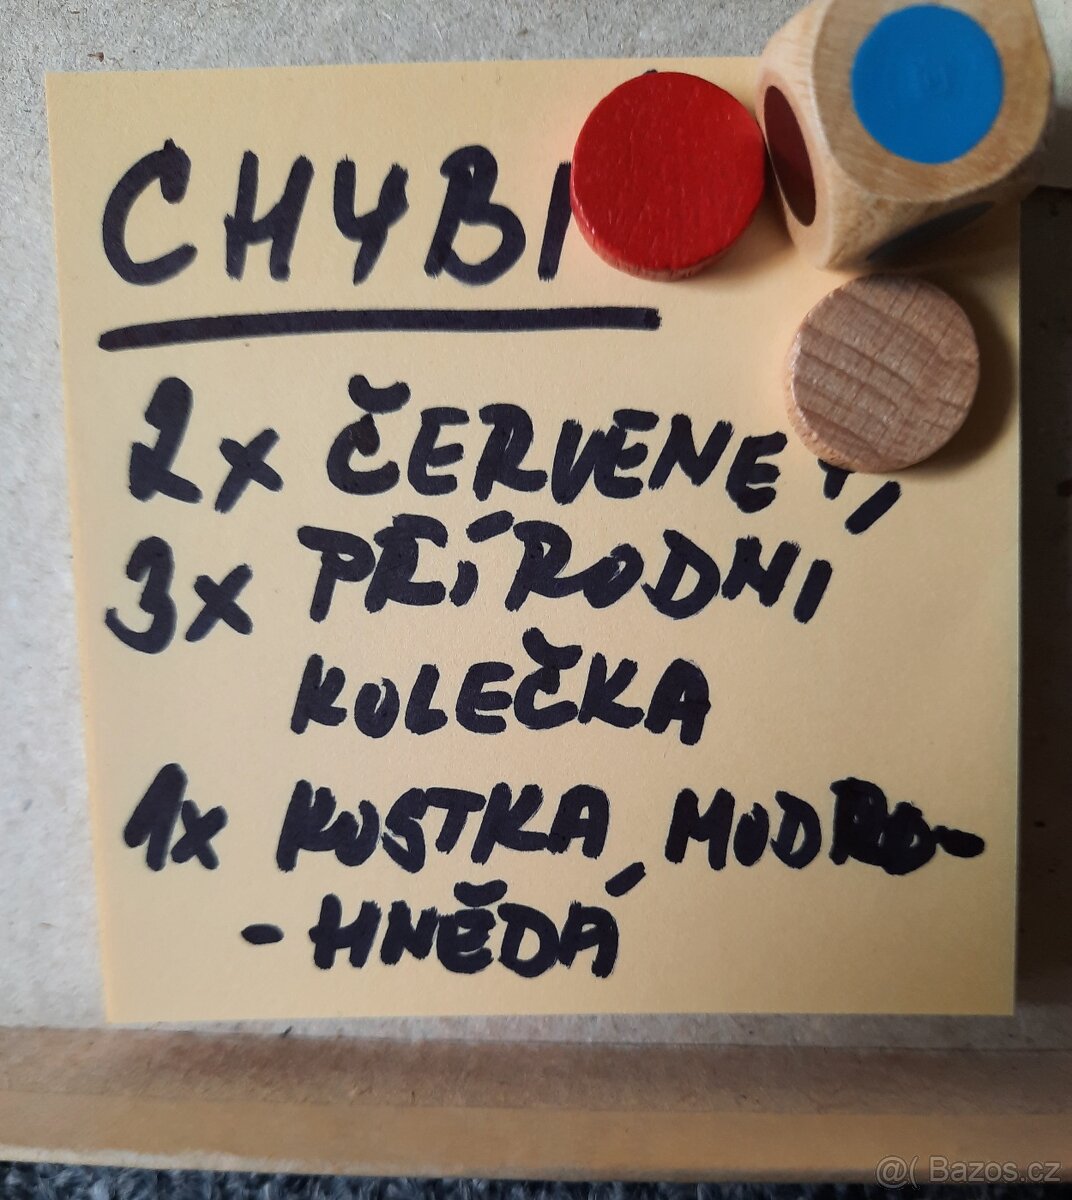 CHYBI
2x ČERVENE,
3x PŘÍRODNI
KOLEČKA
1x KOSTKA, MODRO-
-HNĚDÁ
@( Bazos.cz